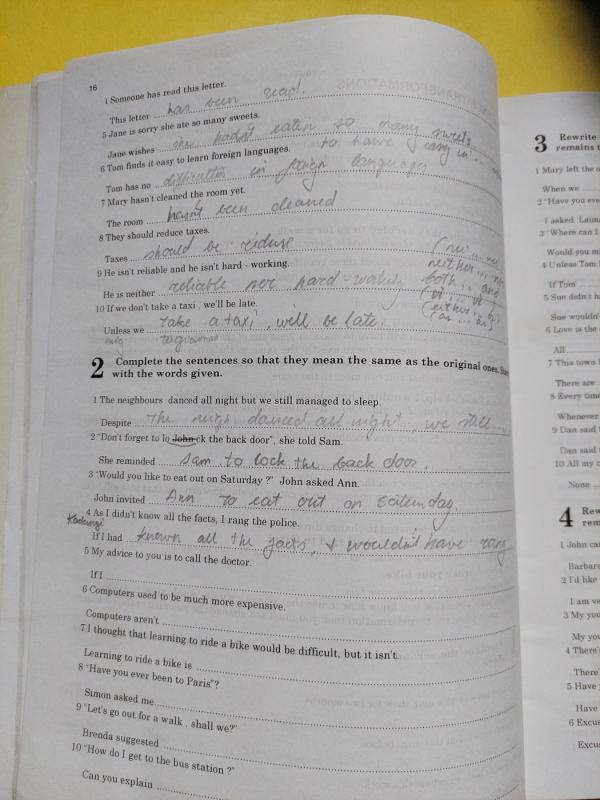 16
1 Someone has read this letter.
This letter has been read.
5 Jane is sorry she ate so many sweets.
Jane wishes she hadn't eaten so many sweets.
6 Tom finds it easy to learn foreign languages.
to have
Tom has no in languages
7 Mary hasn't cleaned the room yet.
The room hasn't been cleaned
8 They should reduce taxes.
Taxes should be
9 He isn't reliable and he isn't hard - working.
neither...
both... and
He is neither reliable nor hard-working
(either... or)
10 If we don't take a taxi, we'll be late.
(as... as)
Unless we take a taxi, we'll be late.
2 Complete the sentences so that they mean the same as the original ones. Start
with the words given.
1 The neighbours danced all night but we still managed to sleep.
Despite the danced all night, we still...
2 "Don't forget to lo John ck the back door", she told Sam.
She reminded Sam to lock the back door.
3 "Would you like to eat out on Saturday ?" John asked Ann.
John invited Ann to eat out on
4 As I didn't know all the facts, I rang the police.
If I had known all the facts, I wouldn't have rang
5 My advice to you is to call the doctor.
If I
6 Computers used to be much more expensive.
Computers aren't
7 I thought that learning to ride a bike would be difficult, but it isn't.
Learning to ride a bike is
8 "Have you ever been to Paris"?
Simon asked me
9 "Let's go out for a walk , shall we?"
Brenda suggested
10 "How do I get to the bus station ?"
Can you explain
3 Rewrite
remains t
1 Mary left the o
When we
2 "Have you eve
I asked Laim
3 "Where can I
Would you m
4 Unless Tom
If Tom
5 Sue didn't h
Sue wouldn'
6 Love is the
All
7 This town
There are
8 Every time
Whenever
9 Dan said t
Dan said
10 All my c
None
4 Rew
rem
1 John ca
Barbara
2 I'd like
I am ve
3 My you
My you
4 There'
There'
5 Have
Have
6 Excus
Excu